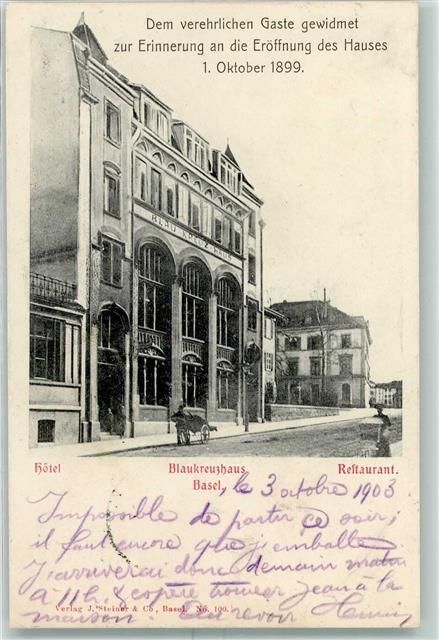 Dem verehrlichen Gaste gewidmet
zur Erinnerung an die Eröffnung des Hauses
1. Oktober 1899.
BLAU KREUZ HAUS
Hôtel Blaukreuzhaus Restaurant.
Basel, le 3 octobre 1903
Impossible de partir ce soir;
il faut encore que j'emballe
J'arriverai donc demain matin
à 11h. & espère trouver Jean à la
maison. Au revoir
Verlag J. Steiner & Co, Basel. No. 100.